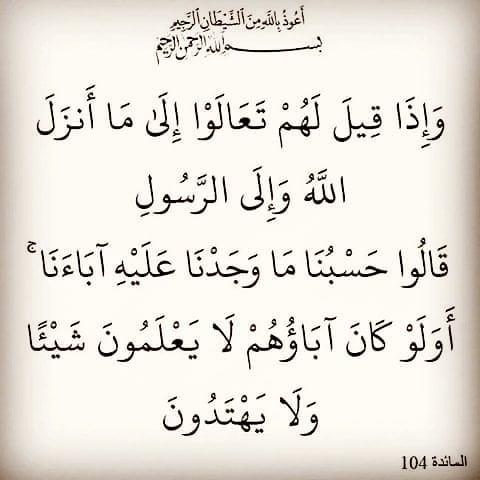 أَعُوذُ بِاللَّهِ مِنَ الشَّيْطَانِ الرَّجِيمِ
بسم الله الرحمن الرحيم
وَإِذَا قِيلَ لَهُمْ تَعَالَوْا إِلَىٰ مَا أَنزَلَ
اللَّهُ وَإِلَى الرَّسُولِ
قَالُوا حَسْبُنَا مَا وَجَدْنَا عَلَيْهِ آبَاءَنَا ۚ
أَوَلَوْ كَانَ آبَاؤُهُمْ لَا يَعْلَمُونَ شَيْئًا
وَلَا يَهْتَدُونَ
المائدة 104